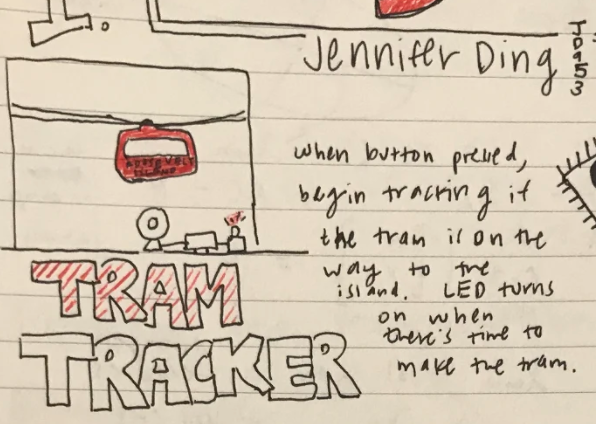 I.
Jennifer Ding
ROOSEVELT
ISLAND
when button pressed,
begin tracking if
the tram is on the
way to the
island. LED turns
on when
there's time to
make the tram.
TRAM
TRACKER